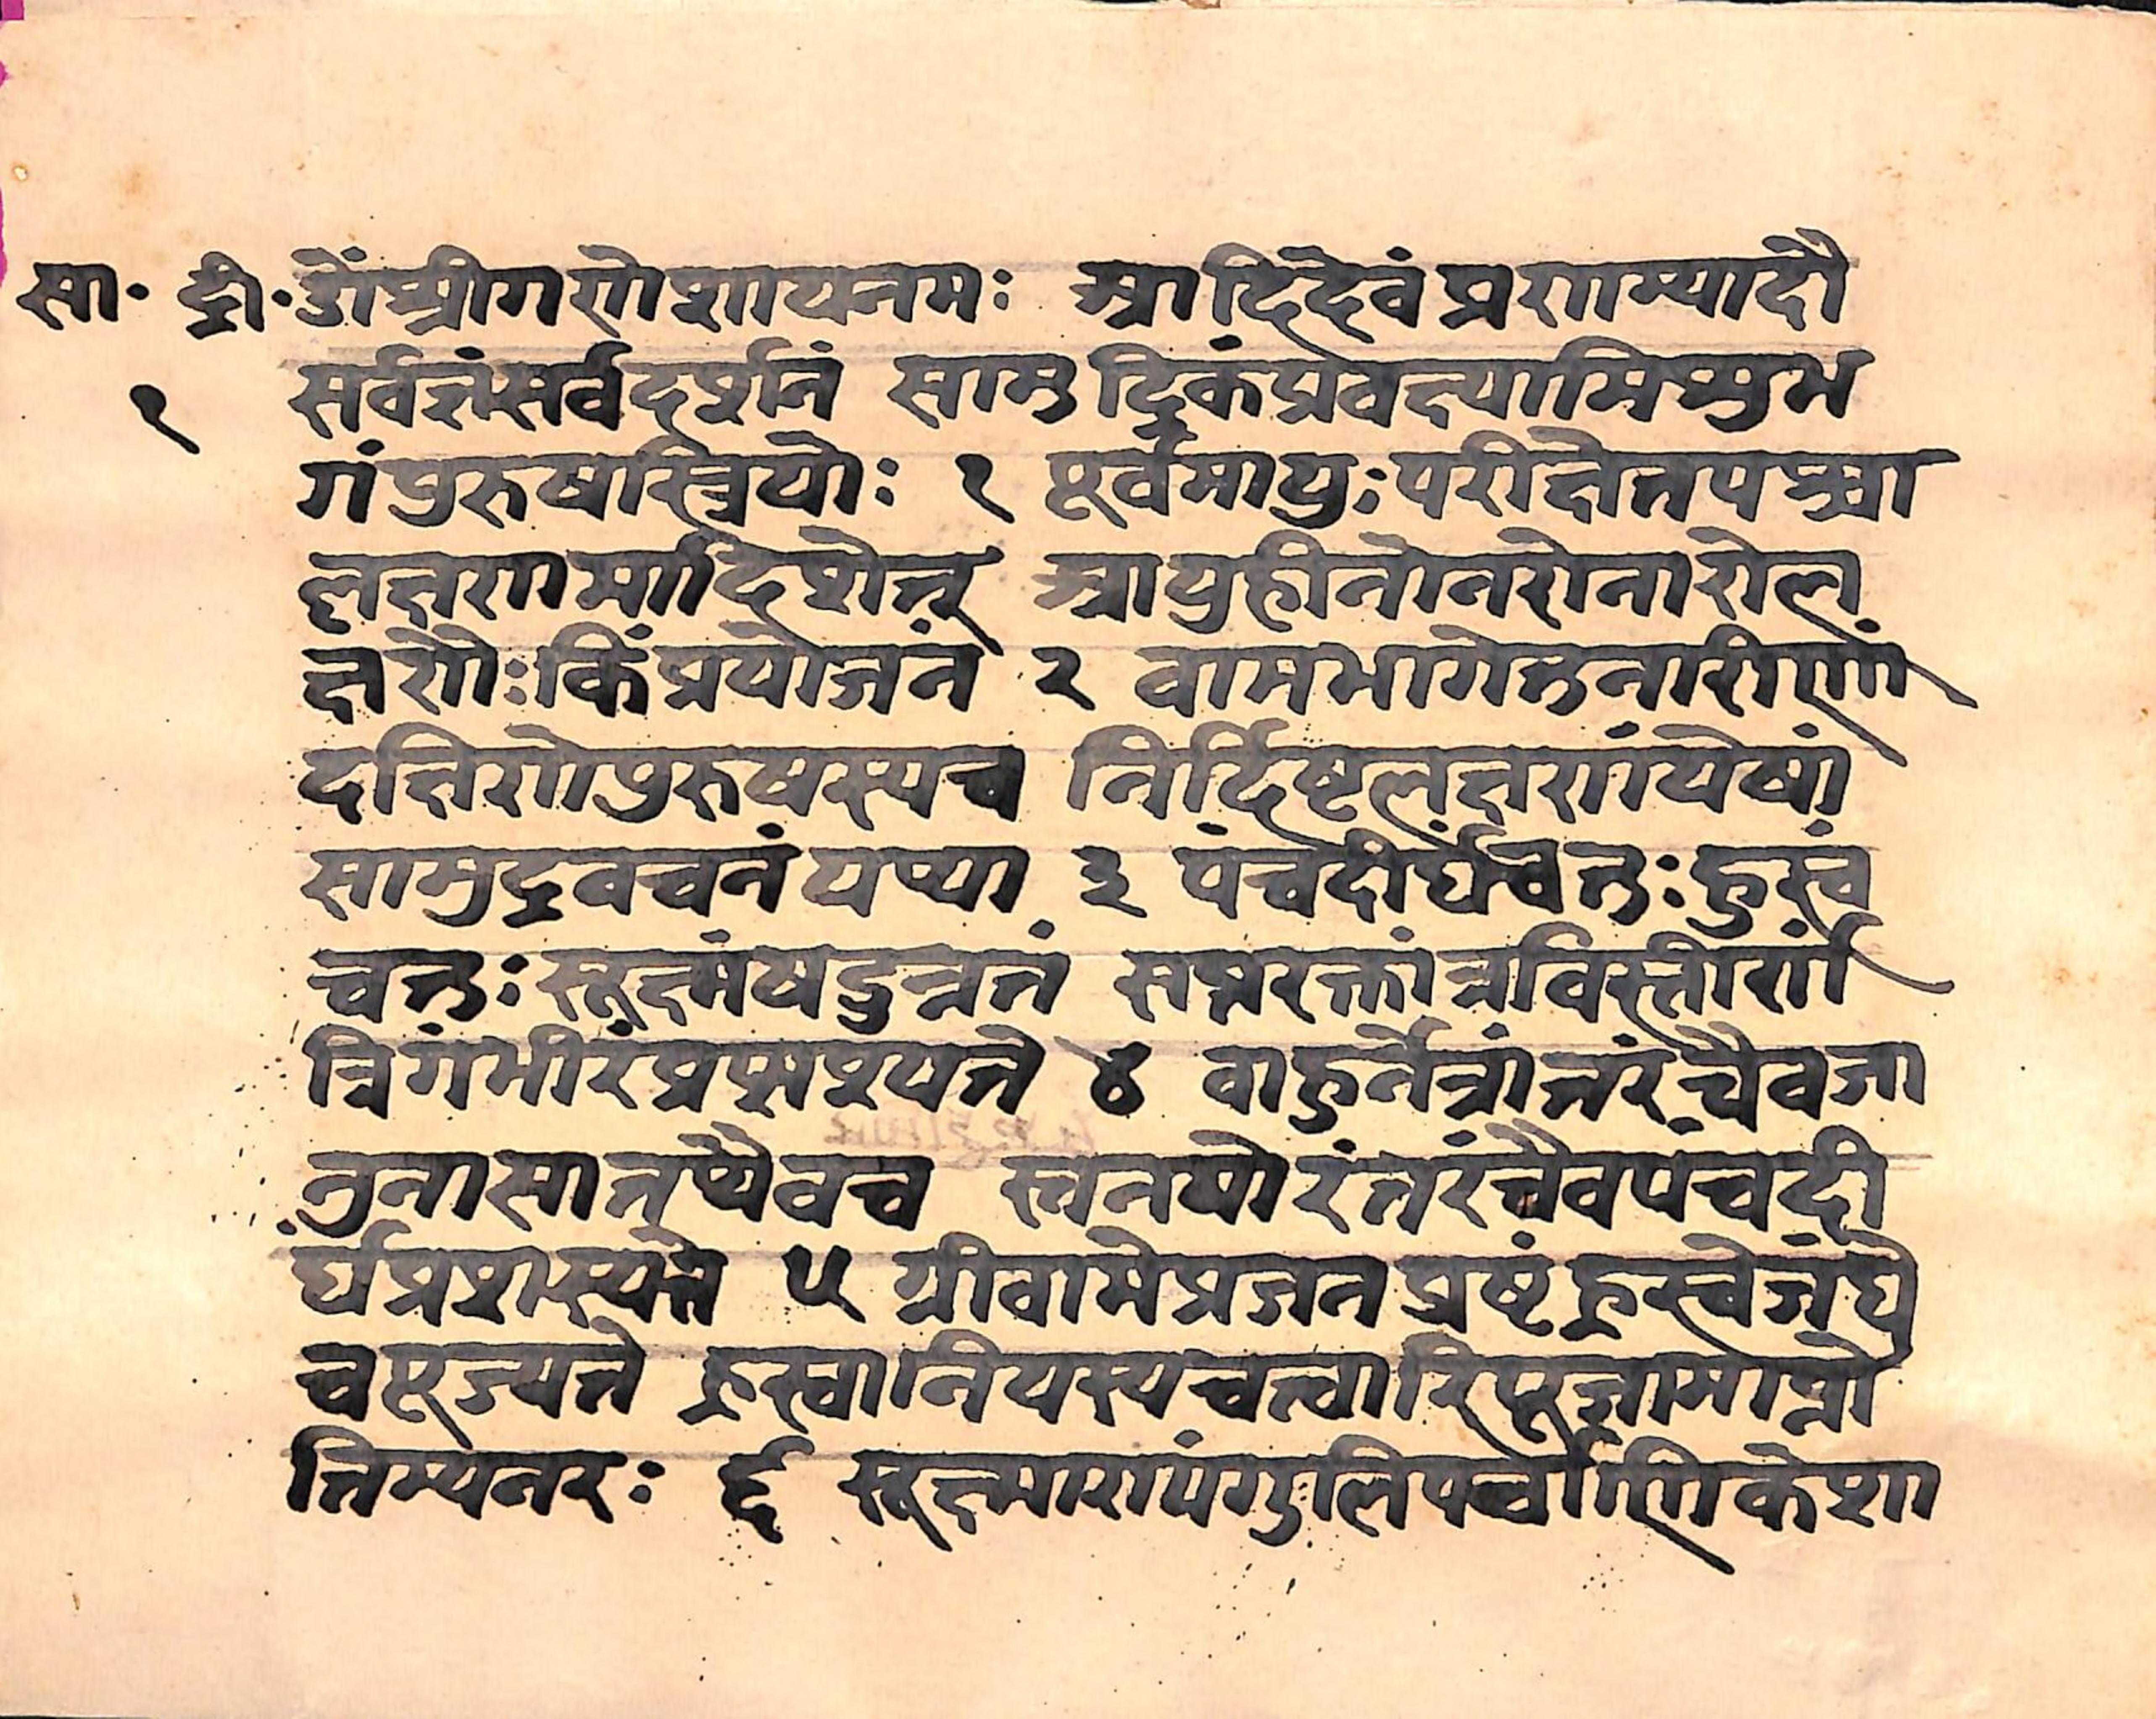 सा. द्री. ॐ श्रीगणेशायनमः आदिदेवं प्रणम्यादौ
१ सर्वज्ञं सर्वदर्शनं सामुद्रिकं प्रवक्ष्यामि शुभ
गं पुरुषस्त्रियोः १ पूर्वमायुः परीक्षेत पश्चा
ल्लक्षणमादिशेत् आयुहीनो नरो नारो ल
क्षणैः किं प्रयोजनं २ वामभागे तु नारीणां
दक्षिणे पुरुषस्य च निर्दिष्टलक्षणं येषां
सामुद्रवचनं यथा ३ पंचदीर्घं चतुः ह्रस्वं
चतुः सूक्ष्मं षडुन्नतं सप्तरक्तं त्रविस्तीर्णां
त्रिगंभीरं प्रशस्यते ४ वाहुनेत्रांतरं चैव जा
नुनासा तथैव च स्तनयोरंतरं चैव पंचदी
र्घं प्रशस्यते ५ ग्रीवामेप्रजनप्रष्टं ह्रस्वे जंघे
च पूज्यते ह्रस्वानि यस्य चत्वारि पूजामाप्नो
तिम्यनरः ६ सूक्ष्माण्यंगुलिपर्वाणि केशा